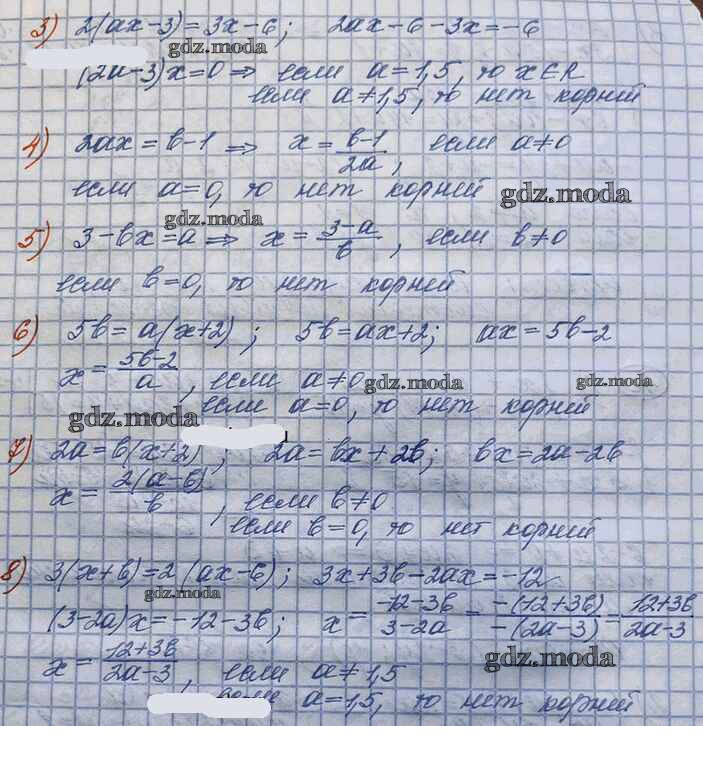 3) 2(ax-3)=3x-6; 2ax-6-3x=-6
gdz.moda
(2a-3)x=0 ⇒ если a=1,5, то x∈R
если a≠1,5, то нет корней
4) 2ax=b-1 ⇒ x=(b-1)/2a, если a≠0
если a=0, то нет корней gdz.moda
gdz.moda
5) 3-bx=a ⇒ x=(3-a)/b, если b≠0
если b=0, то нет корней
6) 5b=a(x+2); 5b=ax+2; ax=5b-2
x=(5b-2)/a, если a≠0 gdz.moda gdz.moda
gdz.moda если a=0, то нет корней
7) 2a=b(x+2); 2a=bx+2b; bx=2a-2b
x=2(a-b)/b, если b≠0
если b=0, то нет корней
8) 3(x+b)=2(ax-6); 3x+3b-2ax=-12
gdz.moda
(3-2a)x=-12-3b; x=(-12-3b)/(3-2a)=-(12+3b)/-(2a-3)=(12+3b)/(2a-3)
x=(12+3b)/(2a-3), если a≠1,5 gdz.moda
если a=1,5, то нет корней
gdz.moda